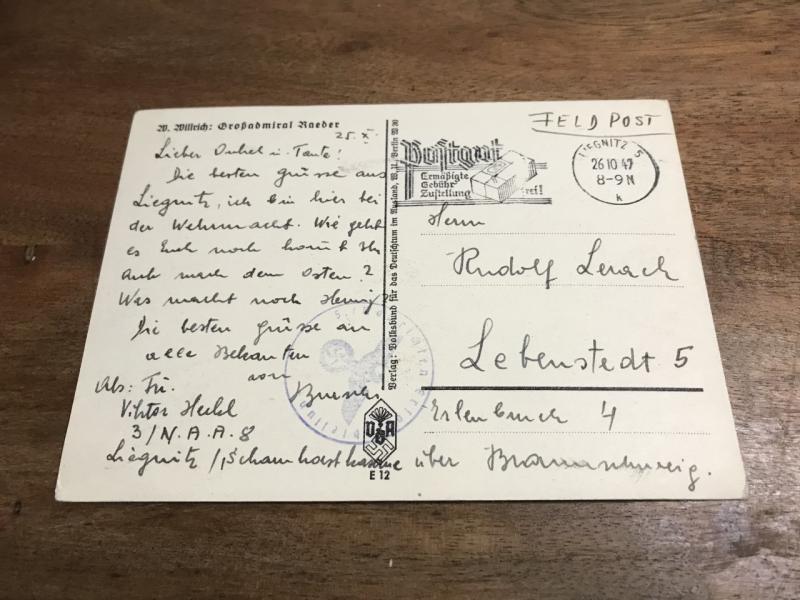 W. Willrich: Großadmiral Raeder
25. X.
Lieber Onkel u. Tante!
Die besten grüsse aus
Liegnitz, ich bin hier bei
der Wehrmacht. Wie geht
es Euch noch kommt Ihr
auch nach dem Osten?
Was macht noch
Die besten grüsse an
alle Bekanten
von
Abs:
Viktor
3/N.A.A. 8
Liegnitz /
Verlag: Volksbund für das Deutschtum im Ausland, Berlin W 30
VDA
E 12
FELDPOST
Postgut
Ermäßigte
Gebühr
Zustellung frei!
LIEGNITZ 5
26 10 42
8-9 N
k
Herrn
Rudolf
Lebenstedt 5
4
über Braunschweig.